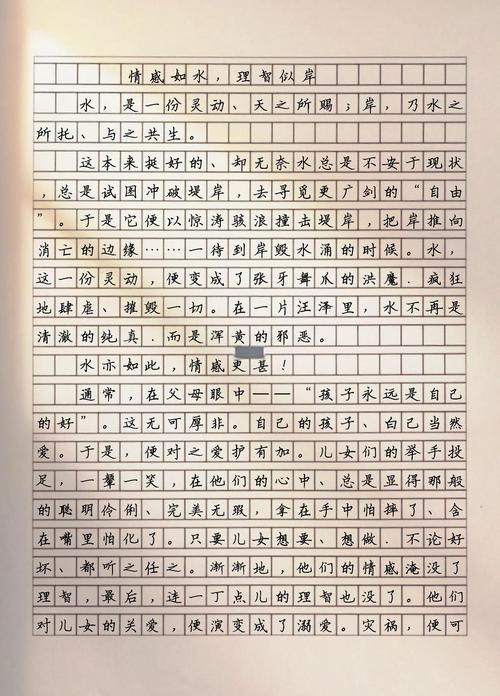 情感如水，理智似岸
水，是一份灵动、天之所赐；岸，乃水之
所托、与之共生。
这本来挺好的、却无奈水总是不安于现状
，总是试图冲破堤岸，去寻觅更广剑的“自由
”。于是它便以惊涛骇浪撞击堤岸，把岸推向
消亡的边缘……一待到岸毁水涌的时候。水，
这一份灵动，便变成了张牙舞爪的洪魔．疯狂
地肆虐、摧毁一切。在一片汪泽里，水不再是
清澈的纯真．而是浑黄的邪恶。
水亦如此，情感更甚！
通常，在父母眼中——“孩子永远是自己
的好”。这无可厚非。自己的孩子、白己当然
爱。于是，便对之爱护有加。儿女们的举手投
足，一颦一笑，在他们的心中、总是显得那般
的聪明伶俐、完美无瑕，拿在手中怕摔了、含
在嘴里怕化了。只要儿女想要、想做．不论好
坏、都听之任之。渐渐地，他们的情感淹没了
理智，最后，连一丁点儿的理智也没了。他们
对儿女的关爱，便演变成了溺爱。灾祸，便可